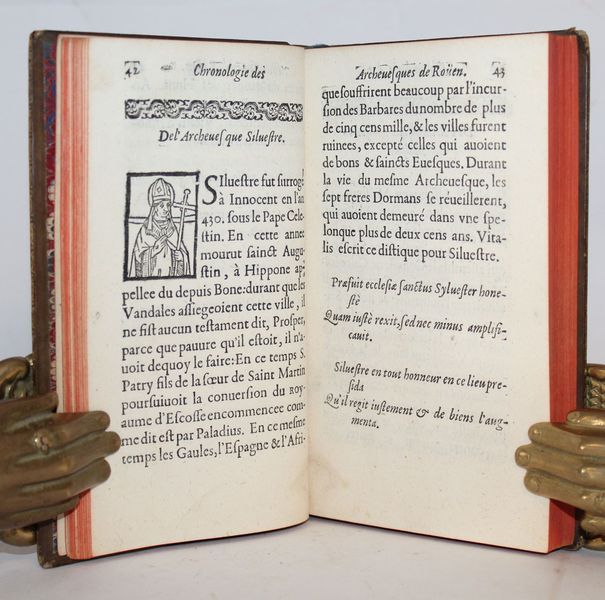 42
Chronologie des
De l'Archeueſque Silueſtre.
SIlueſtre fut ſurrogé
à Innocent en l'an
430. ſous le Pape Cele-
ſtin. En cette année
mourut ſainct Augu-
ſtin, à Hippone ap-
pellee du depuis Bone: durant que les
Vandales aſſiegeoient cette ville, il
ne fiſt aucun teſtament dit, Proſper,
parce que pauure qu'il eſtoit, il n'a-
uoit dequoy le faire: En ce temps S.
Patry fils de la ſœur de Saint Martin
pourſuiuoit la conuerſion du ROY-
aume d'Eſcoſſe encommencee com-
me dit eſt par Paladius. En ce meſme
temps les Gaules, l'Eſpagne & l'Affri-
Archeueſques de Roüen.
43
que ſouffrirent beaucoup par l'incur-
ſion des Barbares du nombre de plus
de cinq cens mille, & les villes furent
ruinees, excepté celles qui auoient
de bons & ſaincts Eueſques. Durant
la vie du meſme Archeueſque, les
ſept freres Dormans ſe réueillerent,
qui auoient demeuré dans vne ſpe-
lonque plus de deux cens ans. Vita-
lis eſcrit ce diſtique pour Silueſtre.
Præfuit eccleſiæ ſanctus Sylueſter hone-
ſtè
Quam iuſtè rexit, ſed nec minus amplifi-
cauit.
Silueſtre en tout honneur en ce lieu pre-
ſida
Qu'il regit iuſtement & de biens l'aug-
menta.